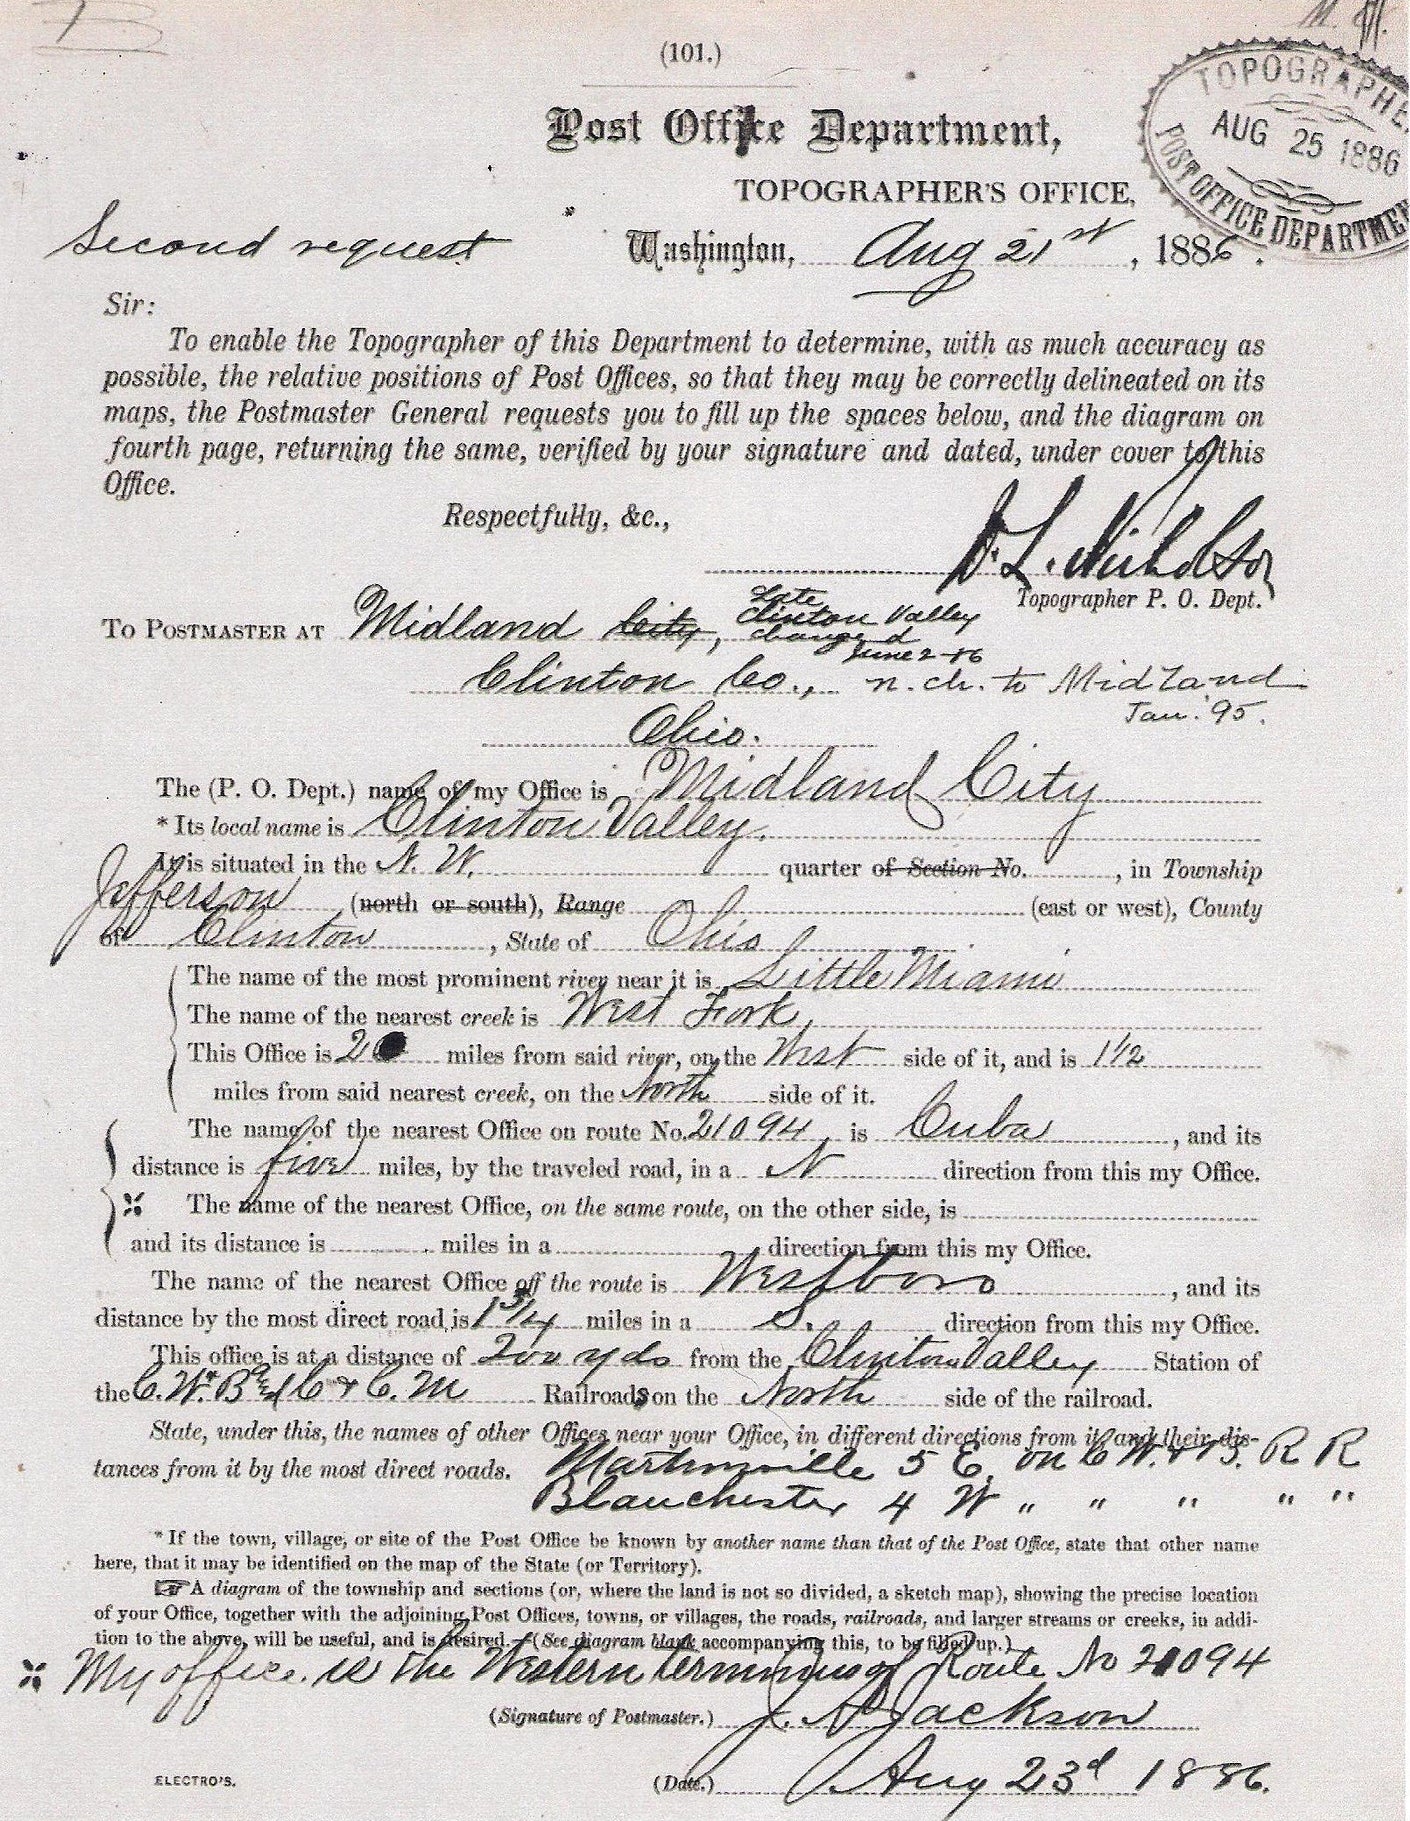 (101.)
Post Office Department,
TOPOGRAPHER'S OFFICE,
TOPOGRAPHER
AUG 25 1886
POST OFFICE DEPARTMEN
Second request
Washington, Aug 21st, 1886.
Sir:
To enable the Topographer of this Department to determine, with as much accuracy as
possible, the relative positions of Post Offices, so that they may be correctly delineated on its
maps, the Postmaster General requests you to fill up the spaces below, and the diagram on
fourth page, returning the same, verified by your signature and dated, under cover to this
Office.
Respectfully, &c.,
D. L. Nicholson
Topographer P. O. Dept.
To Postmaster at Midland City, Late
Clinton Valley
changed
June 2-86
Clinton Co., n. ch. to Midland
Jan. '95.
Ohio.
The (P. O. Dept.) name of my Office is Midland City
* Its local name is Clinton Valley.
It is situated in the N. W. quarter of Section No. , in Township
Jefferson (north or south), Range (east or west), County
of Clinton , State of Ohio
The name of the most prominent river near it is Little Miami
The name of the nearest creek is West Fork,
This Office is 20 miles from said river, on the West side of it, and is 1 1/2
miles from said nearest creek, on the North side of it.
The name of the nearest Office on route No. 21094, is Cuba , and its
distance is five miles, by the traveled road, in a N direction from this my Office.
The name of the nearest Office, on the same route, on the other side, is
and its distance is miles in a direction from this my Office.
The name of the nearest Office off the route is Westboro , and its
distance by the most direct road is 1 3/4 miles in a S. direction from this my Office.
This office is at a distance of 200 yds from the Clinton Valley Station of
the C. W. & B and C & C. M Railroads on the North side of the railroad.
State, under this, the names of other Offices near your Office, in different directions from it and their dis-
tances from it by the most direct roads. Martinville 5 E. on C W. & B. R R
Blanchester 4 W " " " " "
* If the town, village, or site of the Post Office be known by another name than that of the Post Office, state that other name
here, that it may be identified on the map of the State (or Territory).
☞ A diagram of the township and sections (or, where the land is not so divided, a sketch map), showing the precise location
of your Office, together with the adjoining Post Offices, towns, or villages, the roads, railroads, and larger streams or creeks, in addi-
tion to the above, will be useful, and is desired.—(See diagram blank accompanying this, to be filled up.)
My office is the Western terminus of Route No 21094
(Signature of Postmaster.) J. N Jackson
ELECTRO'S.
(Date.) Aug 23d 1886.